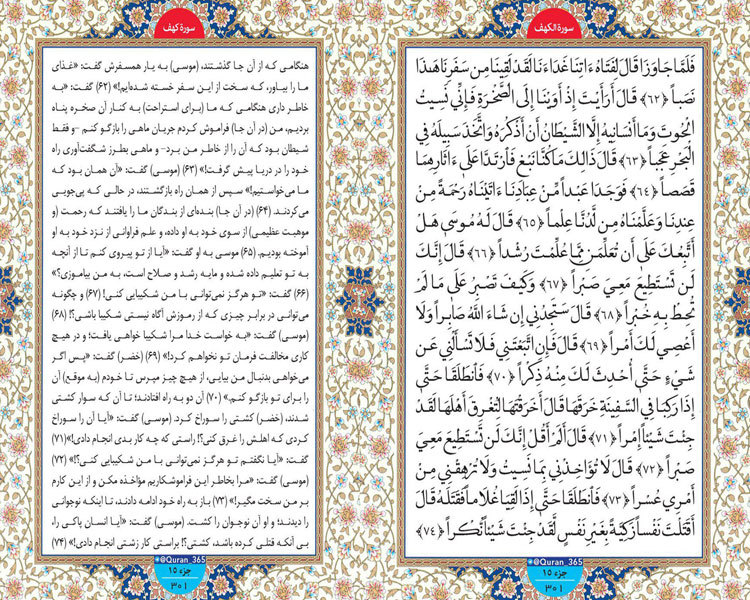 سورة الکهف
فَلَمَّا جَاوَزَا قَالَ لِفَتَاهُ ءَاتِنَا غَدَآءَنَا لَقَدْ لَقِينَا مِن سَفَرِنَا هَٰذَا
نَصَباً ﴿٦٢﴾ قَالَ أَرَأَيْتَ إِذْ أَوَيْنَآ إِلَى الصَّخْرَةِ فَإِنِّي نَسِيتُ
الْحُوتَ وَمَآ أَنسَانِيهُ إِلَّا الشَّيْطَانُ أَنْ أَذْكُرَهُ وَاتَّخَذَ سَبِيلَهُ فِي
الْبَحْرِ عَجَباً ﴿٦٣﴾ قَالَ ذَٰلِكَ مَا كُنَّا نَبْغِ فَارْتَدَّا عَلَىٰٓ ءَاثَارِهِمَا
قَصَصاً ﴿٦٤﴾ فَوَجَدَا عَبْداً مِّنْ عِبَادِنَآ ءَاتَيْنَاهُ رَحْمَةً مِنْ
عِندِنَا وَعَلَّمْنَاهُ مِن لَّدُنَّا عِلْماً ﴿٦٥﴾ قَالَ لَهُ مُوسَىٰ هَلْ
أَتَّبِعُكَ عَلَىٰٓ أَن تُعَلِّمَنِ مِمَّا عُلِّمْتَ رُشْداً ﴿٦٦﴾ قَالَ إِنَّكَ
لَن تَسْتَطِيعَ مَعِيَ صَبْراً ﴿٦٧﴾ وَكَيْفَ تَصْبِرُ عَلَىٰ مَا لَمْ
تُحِطْ بِهِ خُبْراً ﴿٦٨﴾ قَالَ سَتَجِدُنِي إِن شَآءَ اللّٰهُ صَابِراً وَلَآ
أَعْصِي لَكَ أَمْراً ﴿٦٩﴾ قَالَ فَإِنِ اتَّبَعْتَنِي فَلَا تَسْأَلْنِي عَن
شَيْءٍ حَتَّىٰٓ أُحْدِثَ لَكَ مِنْهُ ذِكْراً ﴿٧٠﴾ فَانطَلَقَا حَتَّىٰٓ
إِذَا رَكِبَا فِي السَّفِينَةِ خَرَقَهَا قَالَ أَخَرَقْتَهَا لِتُغْرِقَ أَهْلَهَا لَقَدْ
جِئْتَ شَيْئاً إِمْراً ﴿٧١﴾ قَالَ أَلَمْ أَقُلْ إِنَّكَ لَن تَسْتَطِيعَ مَعِيَ
صَبْراً ﴿٧٢﴾ قَالَ لَا تُؤَاخِذْنِي بِمَا نَسِيتُ وَلَا تُرْهِقْنِي مِنْ
أَمْرِي عُسْراً ﴿٧٣﴾ فَانطَلَقَا حَتَّىٰٓ إِذَا لَقِيَا غُلَاماً فَقَتَلَهُ قَالَ
أَقَتَلْتَ نَفْساً زَكِيَّةً بِغَيْرِ نَفْسٍ لَّقَدْ جِئْتَ شَيْئاً نُّكْراً ﴿٧٤﴾
@Quran_365
جزء ۱۵
۳۰۱
سورهٔ کهف
هنگامی که از آن جا گذشتند، (موسی) به یار همسفرش گفت: «غذای
ما را بیاور، که سخت از این سفر خسته شده‌ایم!» (۶۲) گفت: «به
خاطر داری هنگامی که ما (برای استراحت) به کنار آن صخره پناه
بردیم، من (در آن جا) فراموش کردم جریان ماهی را بازگو کنم -و فقط
شیطان بود که آن را از خاطر من برد- و ماهی بطرز شگفت‌آوری راه
خود را در دریا پیش گرفت!» (۶۳) (موسی) گفت: «آن همان بود که
ما می‌خواستیم!» سپس از همان راه بازگشتند، در حالی که پی‌جویی
می‌کردند. (۶۴) (در آن جا) بنده‌ای از بندگان ما را یافتند که رحمت (و
موهبت عظیمی) از سوی خود به او داده، و علم فراوانی از نزد خود به او
آموخته بودیم. (۶۵) موسی به او گفت: «آیا از تو پیروی کنم تا از آنچه
به تو تعلیم داده شده و مایه رشد و صلاح است، به من بیاموزی؟»
(۶۶) گفت: «تو هرگز نمی‌توانی با من شکیبایی کنی! (۶۷) و چگونه
می‌توانی در برابر چیزی که از رموزش آگاه نیستی شکیبا باشی؟! (۶۸)
(موسی) گفت: «به خواست خدا مرا شکیبا خواهی یافت؛ و در هیچ
کاری مخالفت فرمان تو نخواهم کرد!» (۶۹) (خضر) گفت: «پس اگر
می‌خواهی بدنبال من بیایی، از هیچ چیز مپرس تا خودم (به موقع) آن
را برای تو بازگو کنم.» (۷۰) آن دو به راه افتادند؛ تا آن که سوار کشتی
شدند، (خضر) کشتی را سوراخ کرد. (موسی) گفت: «آیا آن را سوراخ
کردی که اهلش را غرق کنی؟! راستی که چه کار بدی انجام دادی!» (۷۱)
گفت: «آیا نگفتم تو هرگز نمی‌توانی با من شکیبایی کنی؟!» (۷۲)
(موسی) گفت: «مرا بخاطر این فراموشکاریم مؤاخذه مکن و از این کارم
بر من سخت مگیر!» (۷۳) باز به راه خود ادامه دادند، تا اینکه نوجوانی
را دیدند؛ و او آن نوجوان را کشت. (موسی) گفت: «آیا انسان پاکی را،
بی آنکه قتلی کرده باشد، کشتی؟! براستی کار زشتی انجام دادی!» (۷۴)
@Quran_365
جزء ۱۵
۳۰۱